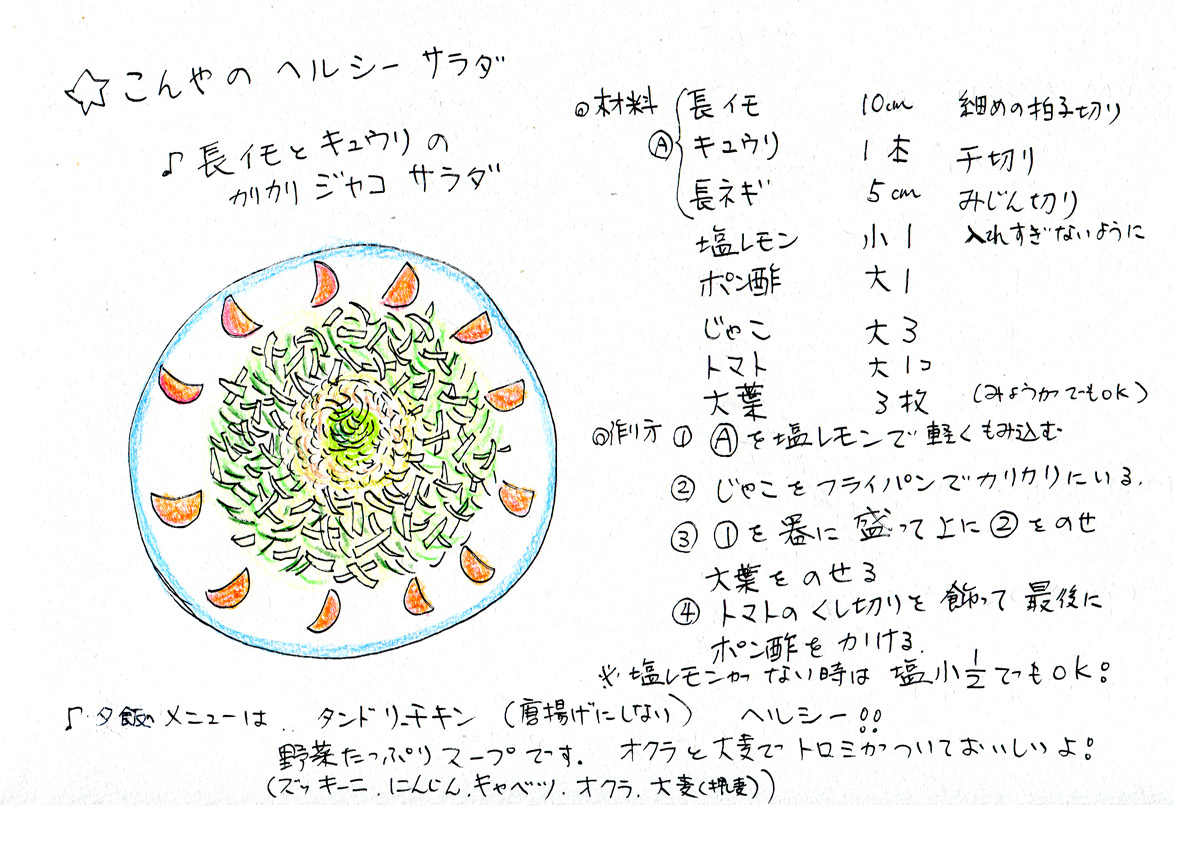 ☆こんやの ヘルシー サラダ
♪ 長イモと キュウリ の
カリカリ ジャコ サラダ
◎材料 Ⓐ 長イモ 10cm 細めの拍子切り
キュウリ 1本 千切り
長ネギ 5cm みじん切り
塩レモン 小1 入れすぎないように
ポン酢 大1
じゃこ 大3
トマト 大1コ
大葉 3枚 (みょうがでもOK)
◎作り方 ① Ⓐを塩レモンで軽くもみ込む
② じゃこをフライパンでカリカリにいる.
③ ①を器に盛って上に②をのせ
大葉をのせる
④ トマトのくし切りを飾って最後に
ポン酢をかける.
※塩レモンがない時は 塩小1/2でもOK!
♪ 夕飯メニューは.. タンドリーチキン (唐揚げにしない) ヘルシー!!
野菜たっぷりスープです. オクラと大麦でトロミがついておいしいよ!
(ズッキーニ.にんじん.キャベツ.オクラ.大麦(押麦))